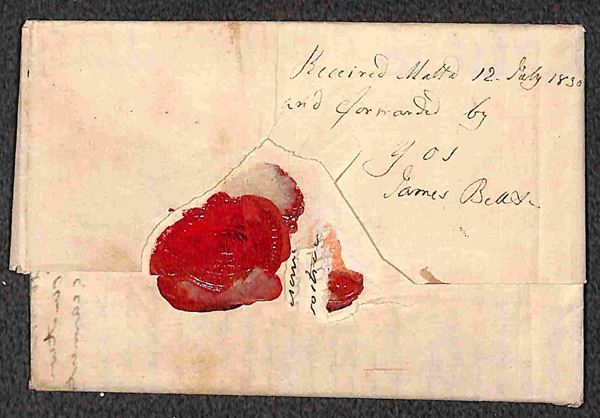 Received Malta 12. July 1830
and forwarded by
y o s
James Bell &